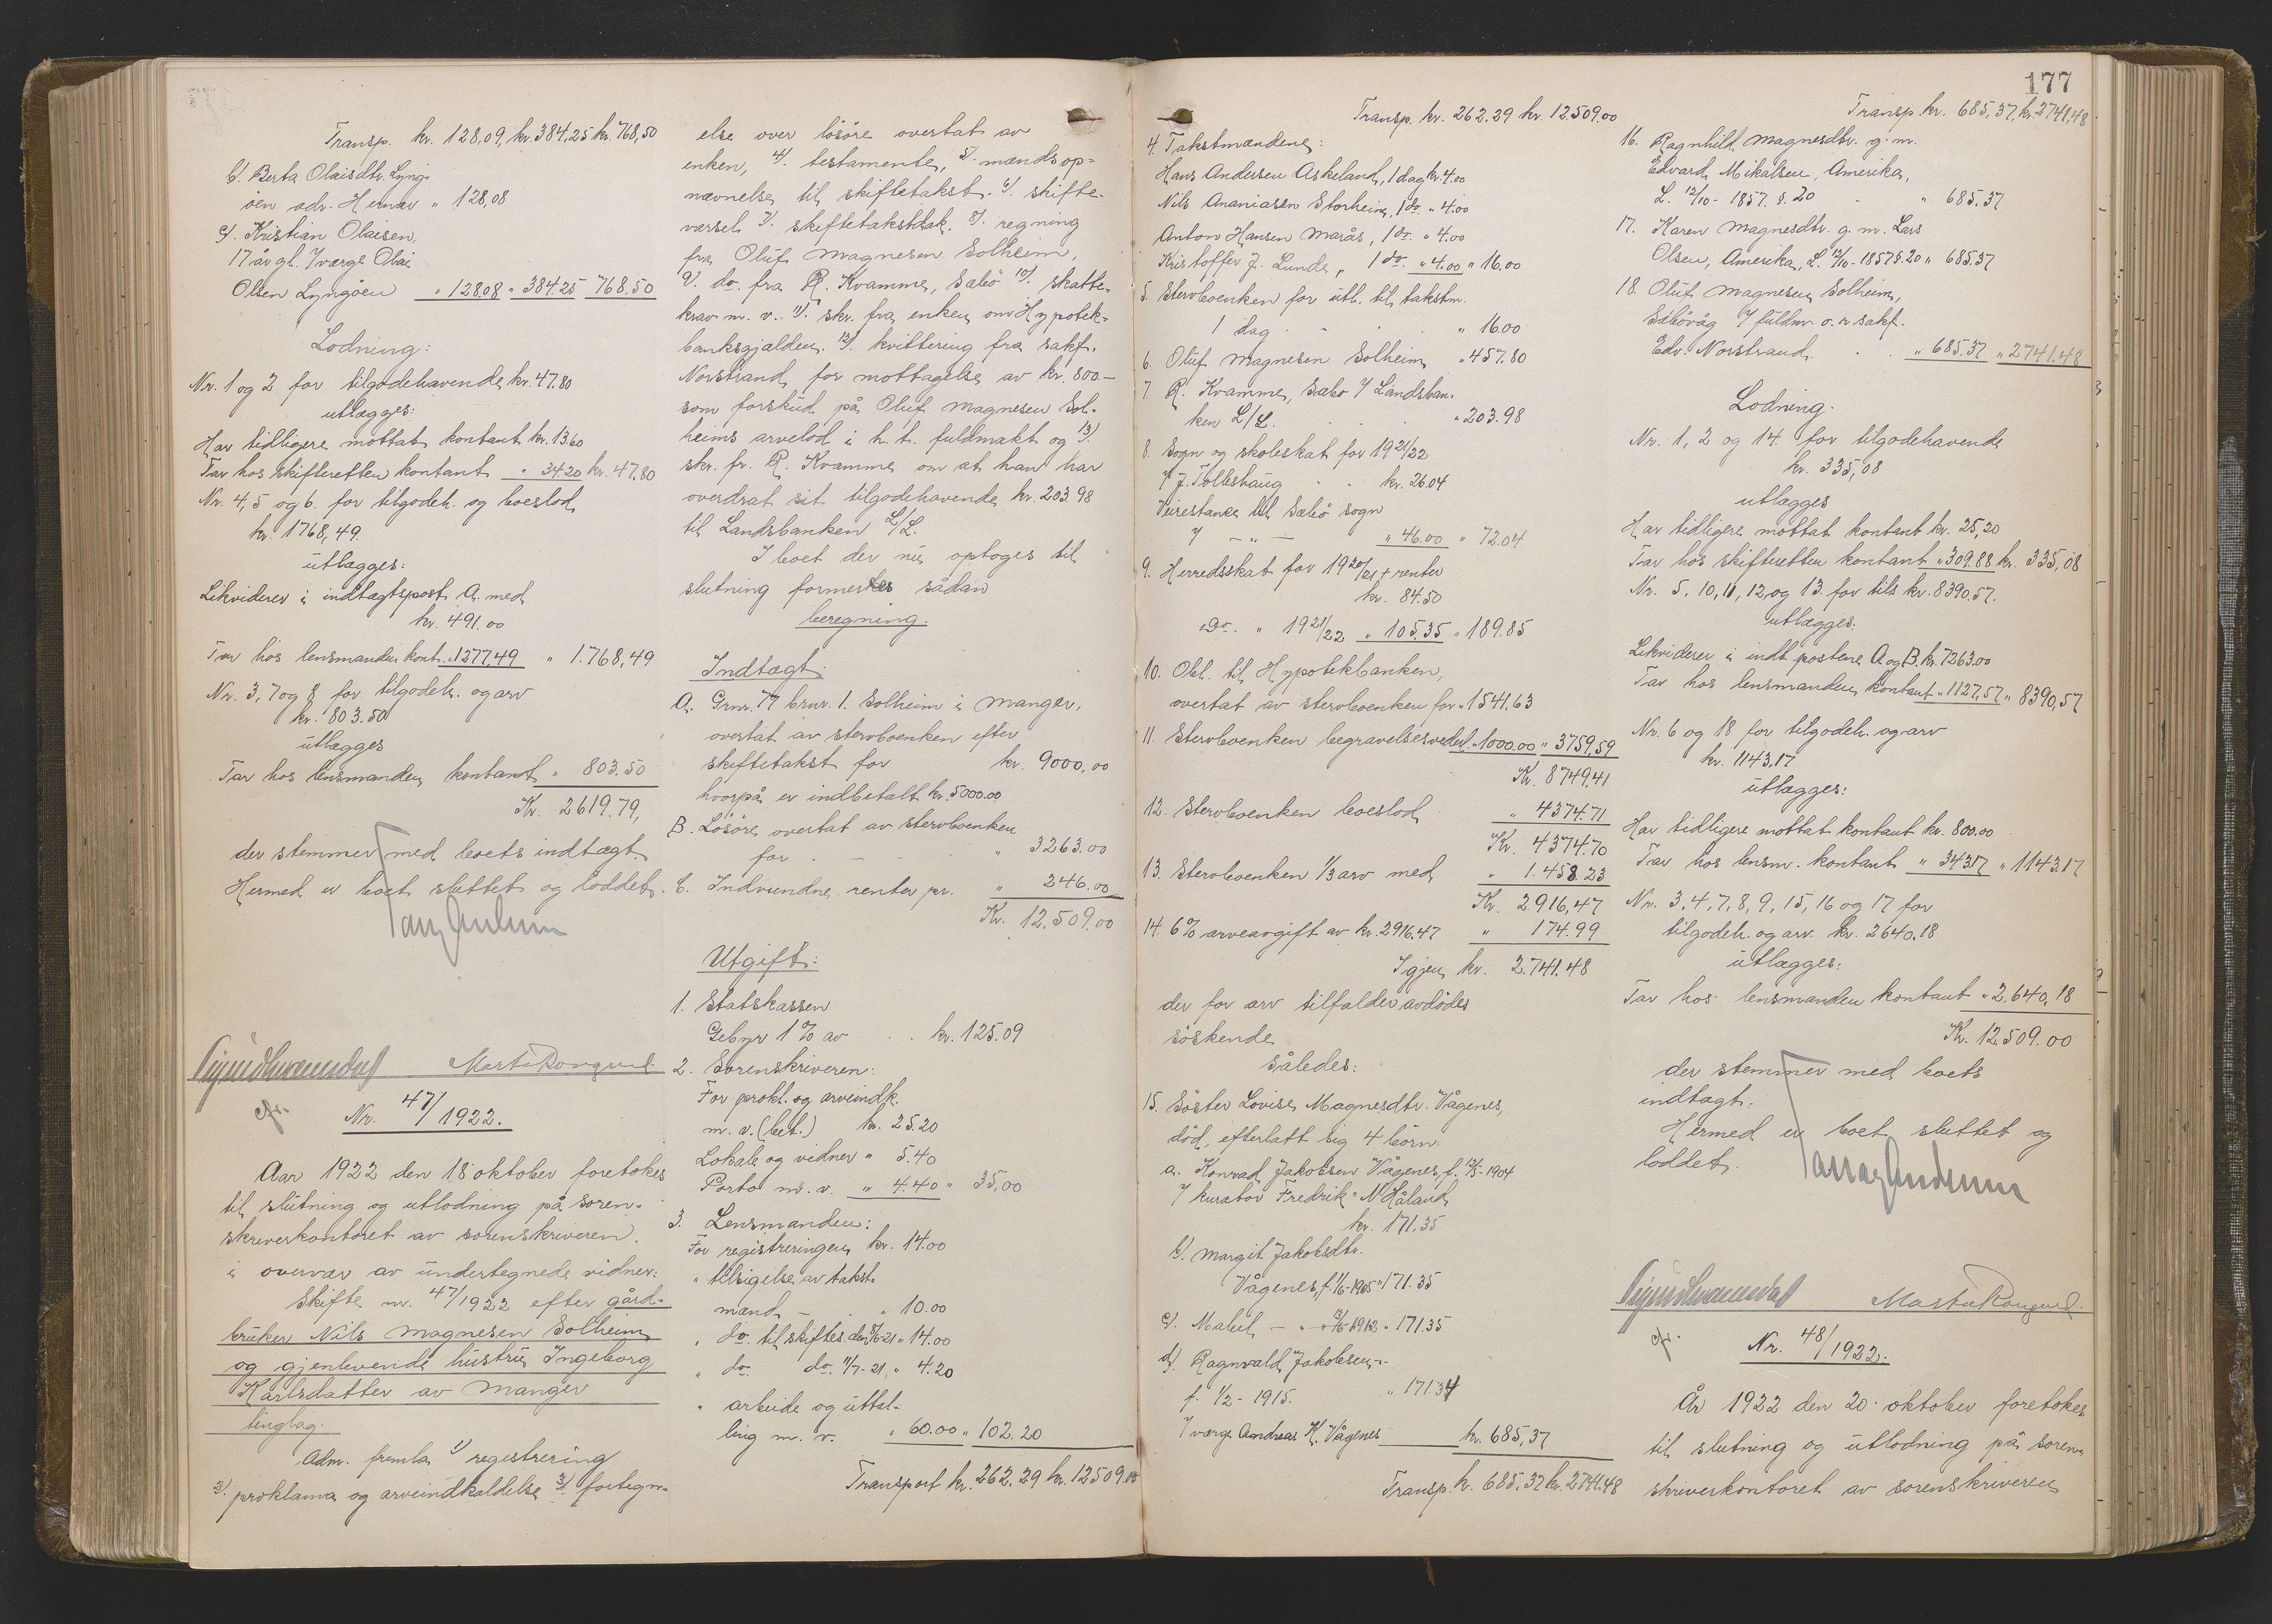 Transp. kr. 128,09, kr. 384.25 kr. 768,50
b/. Berta Olaisdtr. Lyng-
öen adr. Hernar " 128,08
c/. Kristian Olaisen,
17 år gl. Yværge Olai
Olsen Lyngöen " 128.08 " 384.25 768.50
Lodning:
Nr. 1 og 2 for tilgodehavende kr. 47.80
utlægges:
Har tidligere mottat kontant kr. 13.60
Tar hos skifteretten kontant " 34.20 kr. 47.80
Nr. 4, 5 og 6. for tilgodeh. og boeslod
kr. 1768,49.
utlægges:
Likviderer i indtægtspost A. med
kr. 491.00
Tar hos lensmanden kont. " 1277.49 " 1.768,49
Nr. 3, 7 og 8 for tilgodeh. og arv
kr. 803.50
utlægges
Tar hos lensmanden kontant " 803.50
Kr. 2619.79,
der stemmer med boets indtægt.
Hermed er boet sluttet og loddet.
Nr. 47/1922.
Aar 1922 den 18 oktober foretokes
til slutning og utlodning på soren-
skriverkontoret av sorenskriveren.
i overvær av undertegnede vidner:
Skifte nr. 47/1922 efter gård-
bruker Nils Magnesen Solheim
og gjenlevende hustru Ingeborg
Karlsdatter av Manger
tinglag.
Adm. fremla 1) registrering
2). proklama og arveindkaldelse 3). fortegn-
else over lösöre overtat av
enken, 4). testamente, 5). mændsop-
nævnelse til skiftetakst. 6). skifte-
varsel 7). skiftetakst. 8). regning
fra Oluf Magnesen Solheim,
9). do. fra R. Kvamme, Sæbö 10). skatte-
krav m. v. 11). skr. fra enken om Hypotek-
banksgjælden. 12). kvittering fra sakf.
Norstrand for mottagelse av kr. 800.-
som forskud på Oluf Magnesen Sol-
heims arvelod i h. t. fuldmakt og 13)
skr. fr. R. Kvamme om at han har
overdrat sit tilgodehavende kr. 203.98
til Landsbanken L/L.
I boet der nu optoges til
slutning formertes sådan
beregning.
Indtægt
A. Grnr. 77 brnr. 1. Solheim i Manger,
overtat av stervboenken efter
skiftetakst for kr. 9000,00
hvorpå er indbetalt kr. 5000.00
B. Lösöre overtat av stervboenken
for " 3263.00
C. Indvundne renter pr. " 246.00
Kr. 12.509.00
Utgift:
1. Statskassen
Gebyr 1% av kr. 125.09
2. Sorenskriveren:
For prokl. og arveindk.
m. v. (bet.) kr. 25.20
Lokale og vidner " 5.40
Porto m. v. " 4.40 " 35,00
3. Lensmanden:
For registreringen kr. 14.00
" tilsigelse av takst-
mænd - " 10.00
" do. til skiftes. den 8/6-21 " 14.00
" do. do. 11/7-21, " 4.20
" arbeide og uttel-
ling m. v. " 60.00 " 102.20
Transport kr. 262,29 kr. 12509.00
177
Transp. kr. 262.29 kr. 12.509.00
4. Takstmændene:
Hans Andersen Askeland, 1 dag kr. 4.00
Nils Ananiasen Storheim, 1 do. " 4.00
Anton Hansen Marås, 1 do. " 4.00
Kristoffer J. Lunde, " 1 do. " 4.00 " 16.00
5. Stervboenken for utl. til takstm.
1 dag " 16.00
6. Oluf Magnesen Solheim " 457.80
7. R. Kvamme, Sæbö Y Landsban-
ken L/L. " 203.98
8. Sogn og skoleskat for 1921/22
Y J. Tolleshaug kr. 26.04
Veirestanse til Sæbö sogn
Y - " - " 46.00 " 72.04
9. Herredsskat for 1920/21 + renter
kr. 84.50
Do. " 1921/22 " 105.35 " 189.85
10. Obl. til Hypotekbanken,
overtat av stervboenken for " 1541.63
11. Stervboenken begravelsesvederl. " 1000.00 " 3759,59
Kr. 8749,41
12. Stervboenken boeslod " 4374.71
Kr. 4374.70
13. Stervboenken 1/3 arv med " 1.458.23
Kr. 2.916,47
14. 6% arveavgift av kr. 2916.47 " 174.99
Igjen kr. 2.741.48
der for arv tilfalder avdödes
söskende
således:
15. Söster Lovise Magnesdtr. Vågenes,
död, efterlatt sig 4 börn:
a. Konrad Jakobsen Vågenes, f. 12/5-1904
Y kurator Fredrik N Håland
kr. 171.35
b/. Margit Jakobsdtr.
Vågenes, f. 1/6-1905 " 171.35
c/. Mabel - " - 1912 " 171.35
d/. Ragnvald Jakobsen -"-
f. 1/2-1915. " 171.34
Y værge Andreas K. Vågenes kr. 685,37
Transp. kr. 685.37 kr. 2741.48
Transp. kr. 685,37, kr. 2741,48
16. Ragnhild Magnesdtr. g. m.
Edvard Mikalsen, Amerika,
L. 12/10-1857. §. 20 " 685.37
17. Karen Magnesdtr. g. m. Lars
Olsen, Amerika, L. 12/10-1857 §. 20 " 685.37
18. Oluf Magnesen Solheim,
Sæbövåg Y fuldm. o. r. sakf.
Edv. Norstrand " 685.37 " 2741.48
Lodning.
Nr. 1, 2 og 14 for tilgodehavende
kr. 335,08
utlægges
Har tidligere mottat kontant kr. 25,20
Tar hos skifteretten kontant " 309.88 kr. 335,08
Nr. 5, 10, 11, 12 og 13 for tils kr. 8390.57.
utlægges:
Likviderer i indt. postene A og B. kr. 7263.00
Tar hos lensmanden kontant " 1127,57 " 8390,57
Nr. 6 og 18 for tilgodeh. og arv
kr. 1143.17
utlægges:
Har tidligere mottat kontant kr. 800.00
Tar hos lensm. kontant " 343.17 " 1143.17
Nr. 3, 4, 7, 8, 9, 15, 16 og 17 for
tilgodeh. og arv. kr. 2640.18
utlægges:
Tar hos lensmanden kontant " 2.640,18
Kr. 12.509.00
der stemmer med boets
indtægt.
Hermed er boet sluttet og
loddet.
Nr. 48/1922.
År 1922 den 20. oktober foretokes
til slutning og utlodning på soren-
skriverkontoret av sorenskriveren